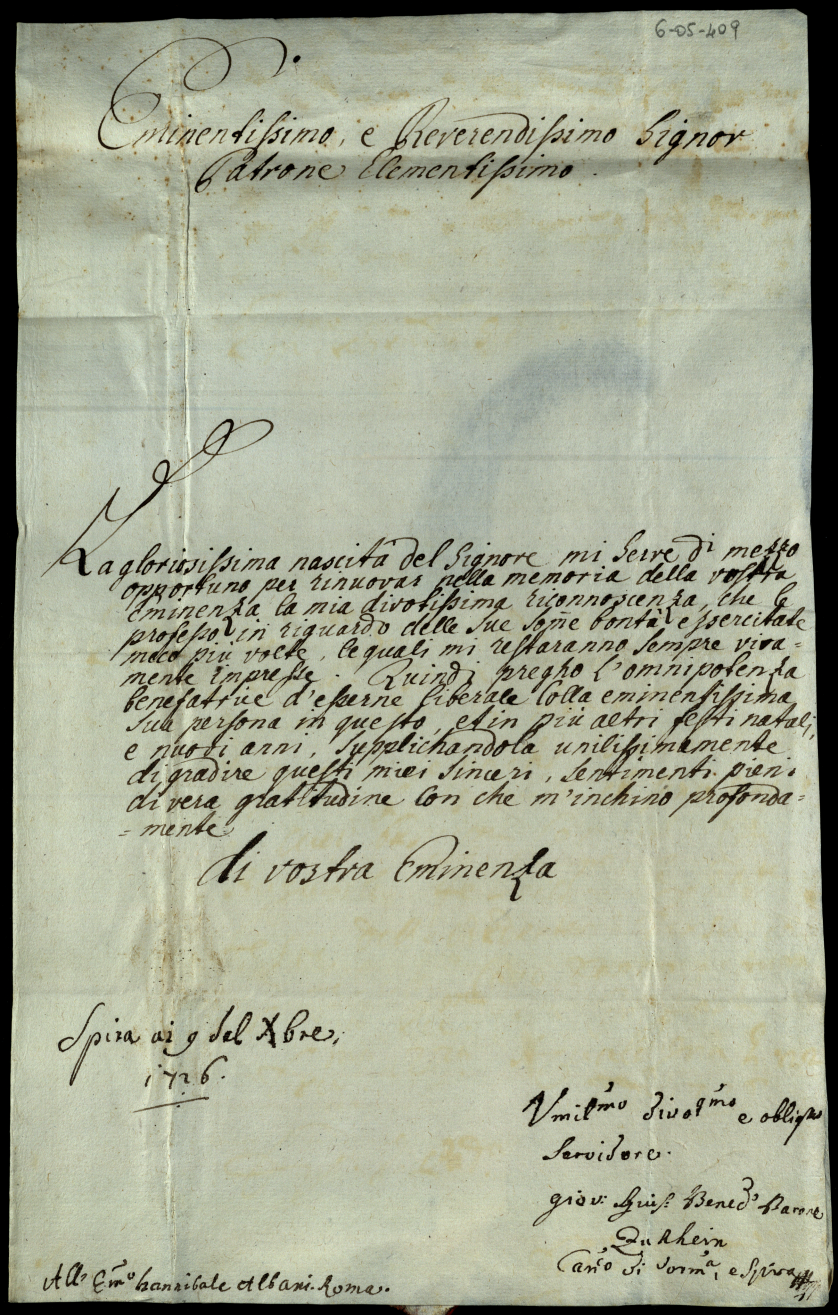 6-05-409
Eminentissimo, e Reverendissimo Signor
Patrone Clementissimo.
La gloriosissima nascita del Signore mi serve di mezzo
opportuno per rinuovar nella memoria della vostra
Eminenza la mia divotissima riconnoscenza, che le
professo in riguardo delle sue som̄e bontà essercitate
meco più volte, le quali mi restaranno sempre viva=
mente impresse. Quindi pregho l'omnipotenza
benefatrice d'esserne liberale colla eminentissima
sua persona in questo, et in più altri festi natali,
e nuovi anni, supplichandola umilissimamente
di gradire questi miei sinceri, sentimenti pieni
di vera gratitudine con che m'inchino profonda=
=mente
di vostra Eminenza
Spira ai 9 del Xbre,
1726.
Umilmo divotmo e obligmo
Servidore.
Giov: Guis: Bened: Barone
Zu Rhein
Canco di Vorma, e Spira
All' Emo Hannibale Albani. Roma.